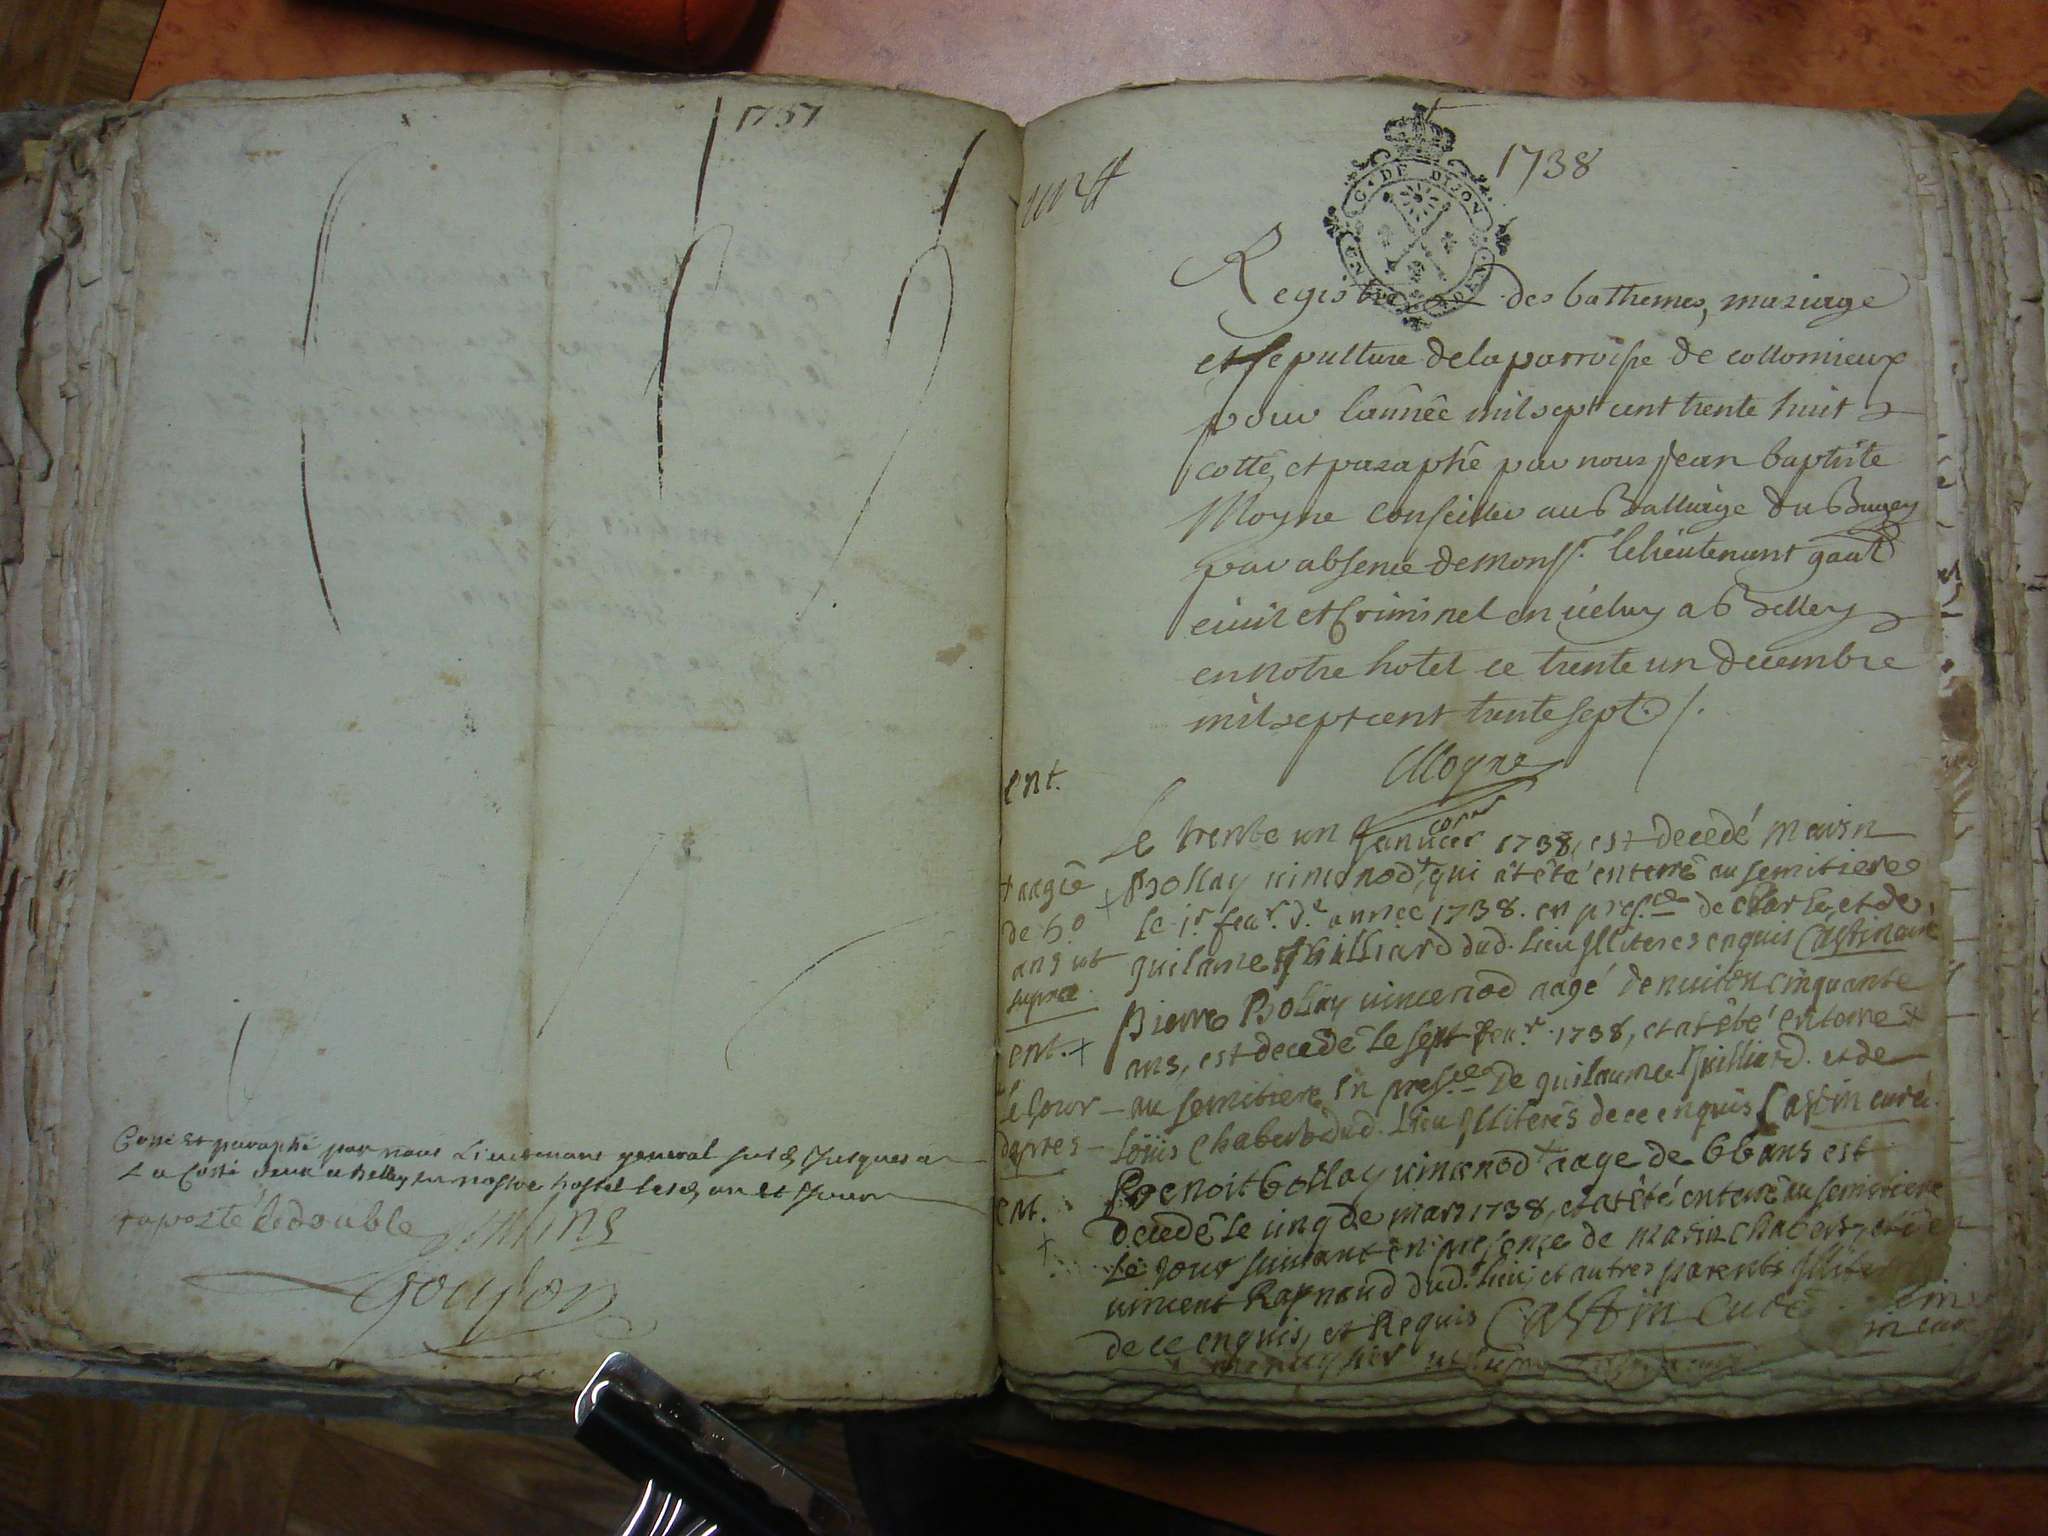 1737
Cotté et paraphé par nous Lieutenant general
La Coste a Belley en nostre hostel
raporté le double
Goujon
1738
G. DE DIJON
Registre des bathemes, mariage
et sepulture de la parroisse de collomieux
pour lannéé mil sept cent trente huit
cotté, et paraphé par nous Jean baptiste
Moyne Conseiller au Balliaige du Bugey
par absence de Monsr. le lieutenant gnal
civil et Criminel en iceluy a Belley
en notre hotel ce trente un decembre
mil sept cent trente sept ./.
Moyne
ent.
Le trente un Janvier 1738, est decedé
+ aagée
Bollay vincenod + qui at été enterré au semitiere
de 50
le 1r. fevr. de. année 1738. en presce de charle, et de
ans ut
guilame Juilliard dud. lieu Illiteres enquis Castin curé
supra
Pierre Bollay vincenod aagé denuiron cinquante
ent. +
ans, est decedé le sept fevr. 1738, et at été enterré +
le jour
au semitiere en presce de guilaume Juilliard. et de
dapres
Loüis Chabert dud. lieu Illiterés de ce enquis Castin curé.
ent.
Benoit bollay vincenod + aage de 66 ans est
+
decedé le cinq de mars 1738, et at été enterré au semitiere
Le jour suivant en presence de chabert, et de
vincent Raynaud dud. lieu, et autres parents
de ce enquis, et Requis Castin Curé